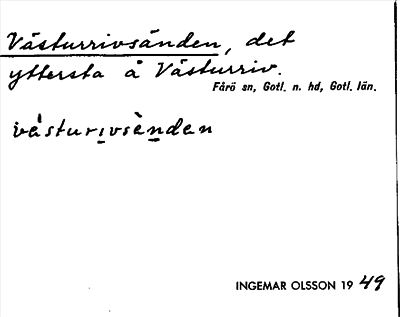 Västurrivsänden, det
yttersta å Västurriv.
Fårö sn, Gotl. n. hd, Gotl. län.
västurivsènden
INGEMAR OLSSON 19 49